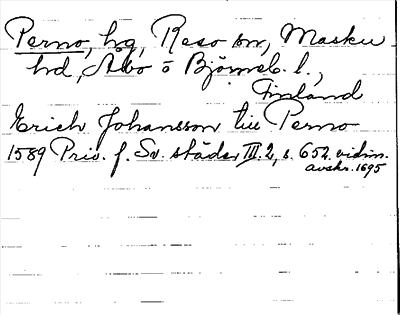 Perno, hg, Reso sn, Masku
hd, Åbo o Björneb. l.,
Finland
Erich Johansson till Perno
1589 Priv. f. Sv. städer III. 2, s. 652. vidim.
avskr. 1695